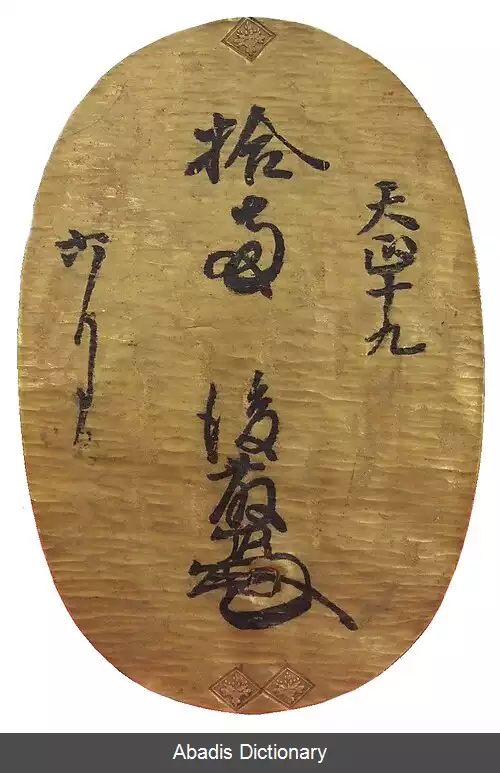 天正十九
拾両
後藤
六月日
Abadis Dictionary